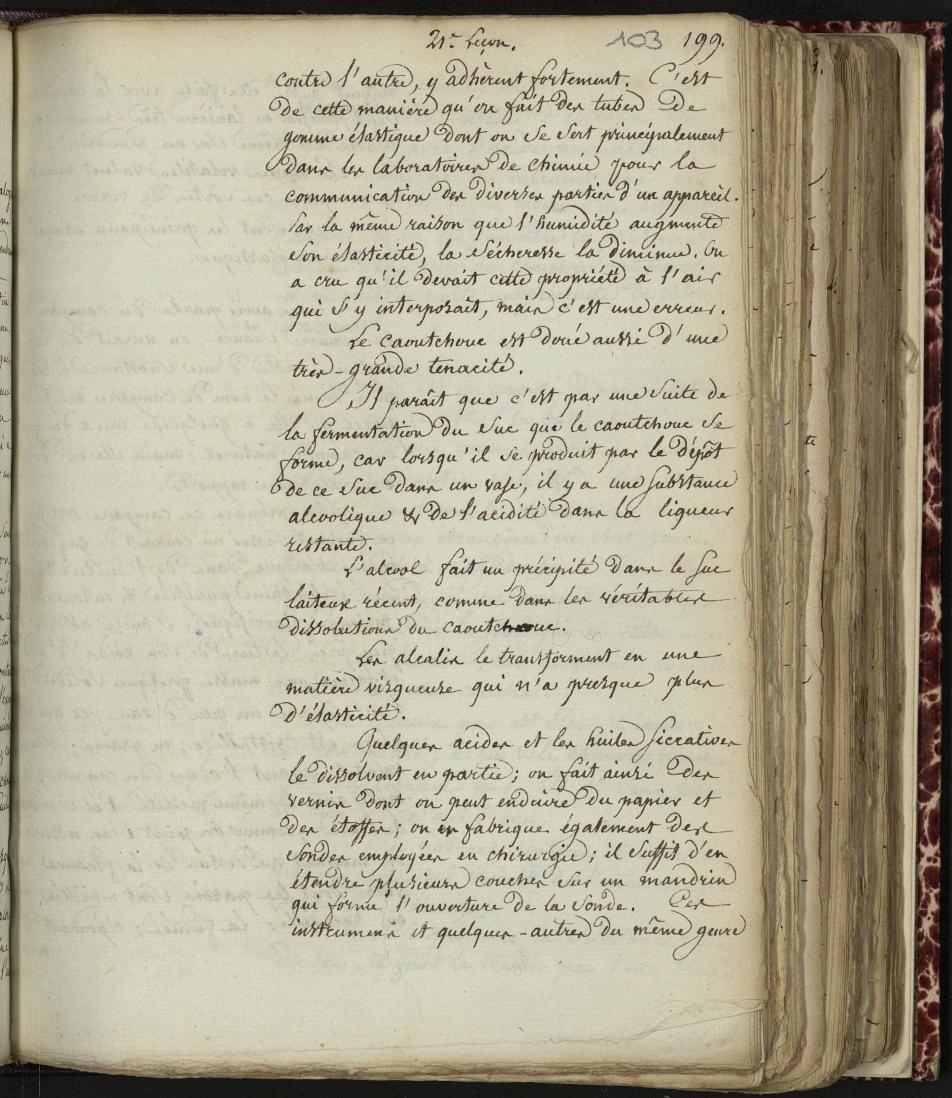 21e. Leçon. 103 199.
contre l'autre, y adhèrent fortement. C'est
de cette manière qu'on fait des tubes de
gomme élastique dont on se sert principalement
dans les laboratoires de chimie pour la
communication des diverses parties d'un appareil.
Par la même raison que l'humidité augmente
son élasticité, la sécheresse la diminue. On
a cru qu'il devait cette propriété à l'air
qui s'y interposait, mais c'est une erreur.
Le caoutchouc est doué aussi d'une
très-grande tenacité.
Il paraît que c'est par une suite de
la fermentation du suc que le caoutchouc se
forme, car lorsqu'il se produit par le dépôt
de ce suc dans un vase, il y a une substance
alcoolique & de l'acidité dans la liqueur
restante.
L'alcool fait un précipité dans le suc
laiteux récent, comme dans les véritables
dissolutions du caoutchouc.
Les alcalis le transforment en une
matière visqueuse qui n'a presque plus
d'élasticité.
Quelques acides et les huiles siccatives
le dissolvent en partie; on fait ainsi des
vernis dont on peut enduire du papier et
des étoffes; on en fabrique également des
sondes employées en chirurgie; il suffit d'en
étendre plusieurs couches sur un mandrin
qui forme l'ouverture de la sonde. Ces
instrumens et quelques-autres du même genre